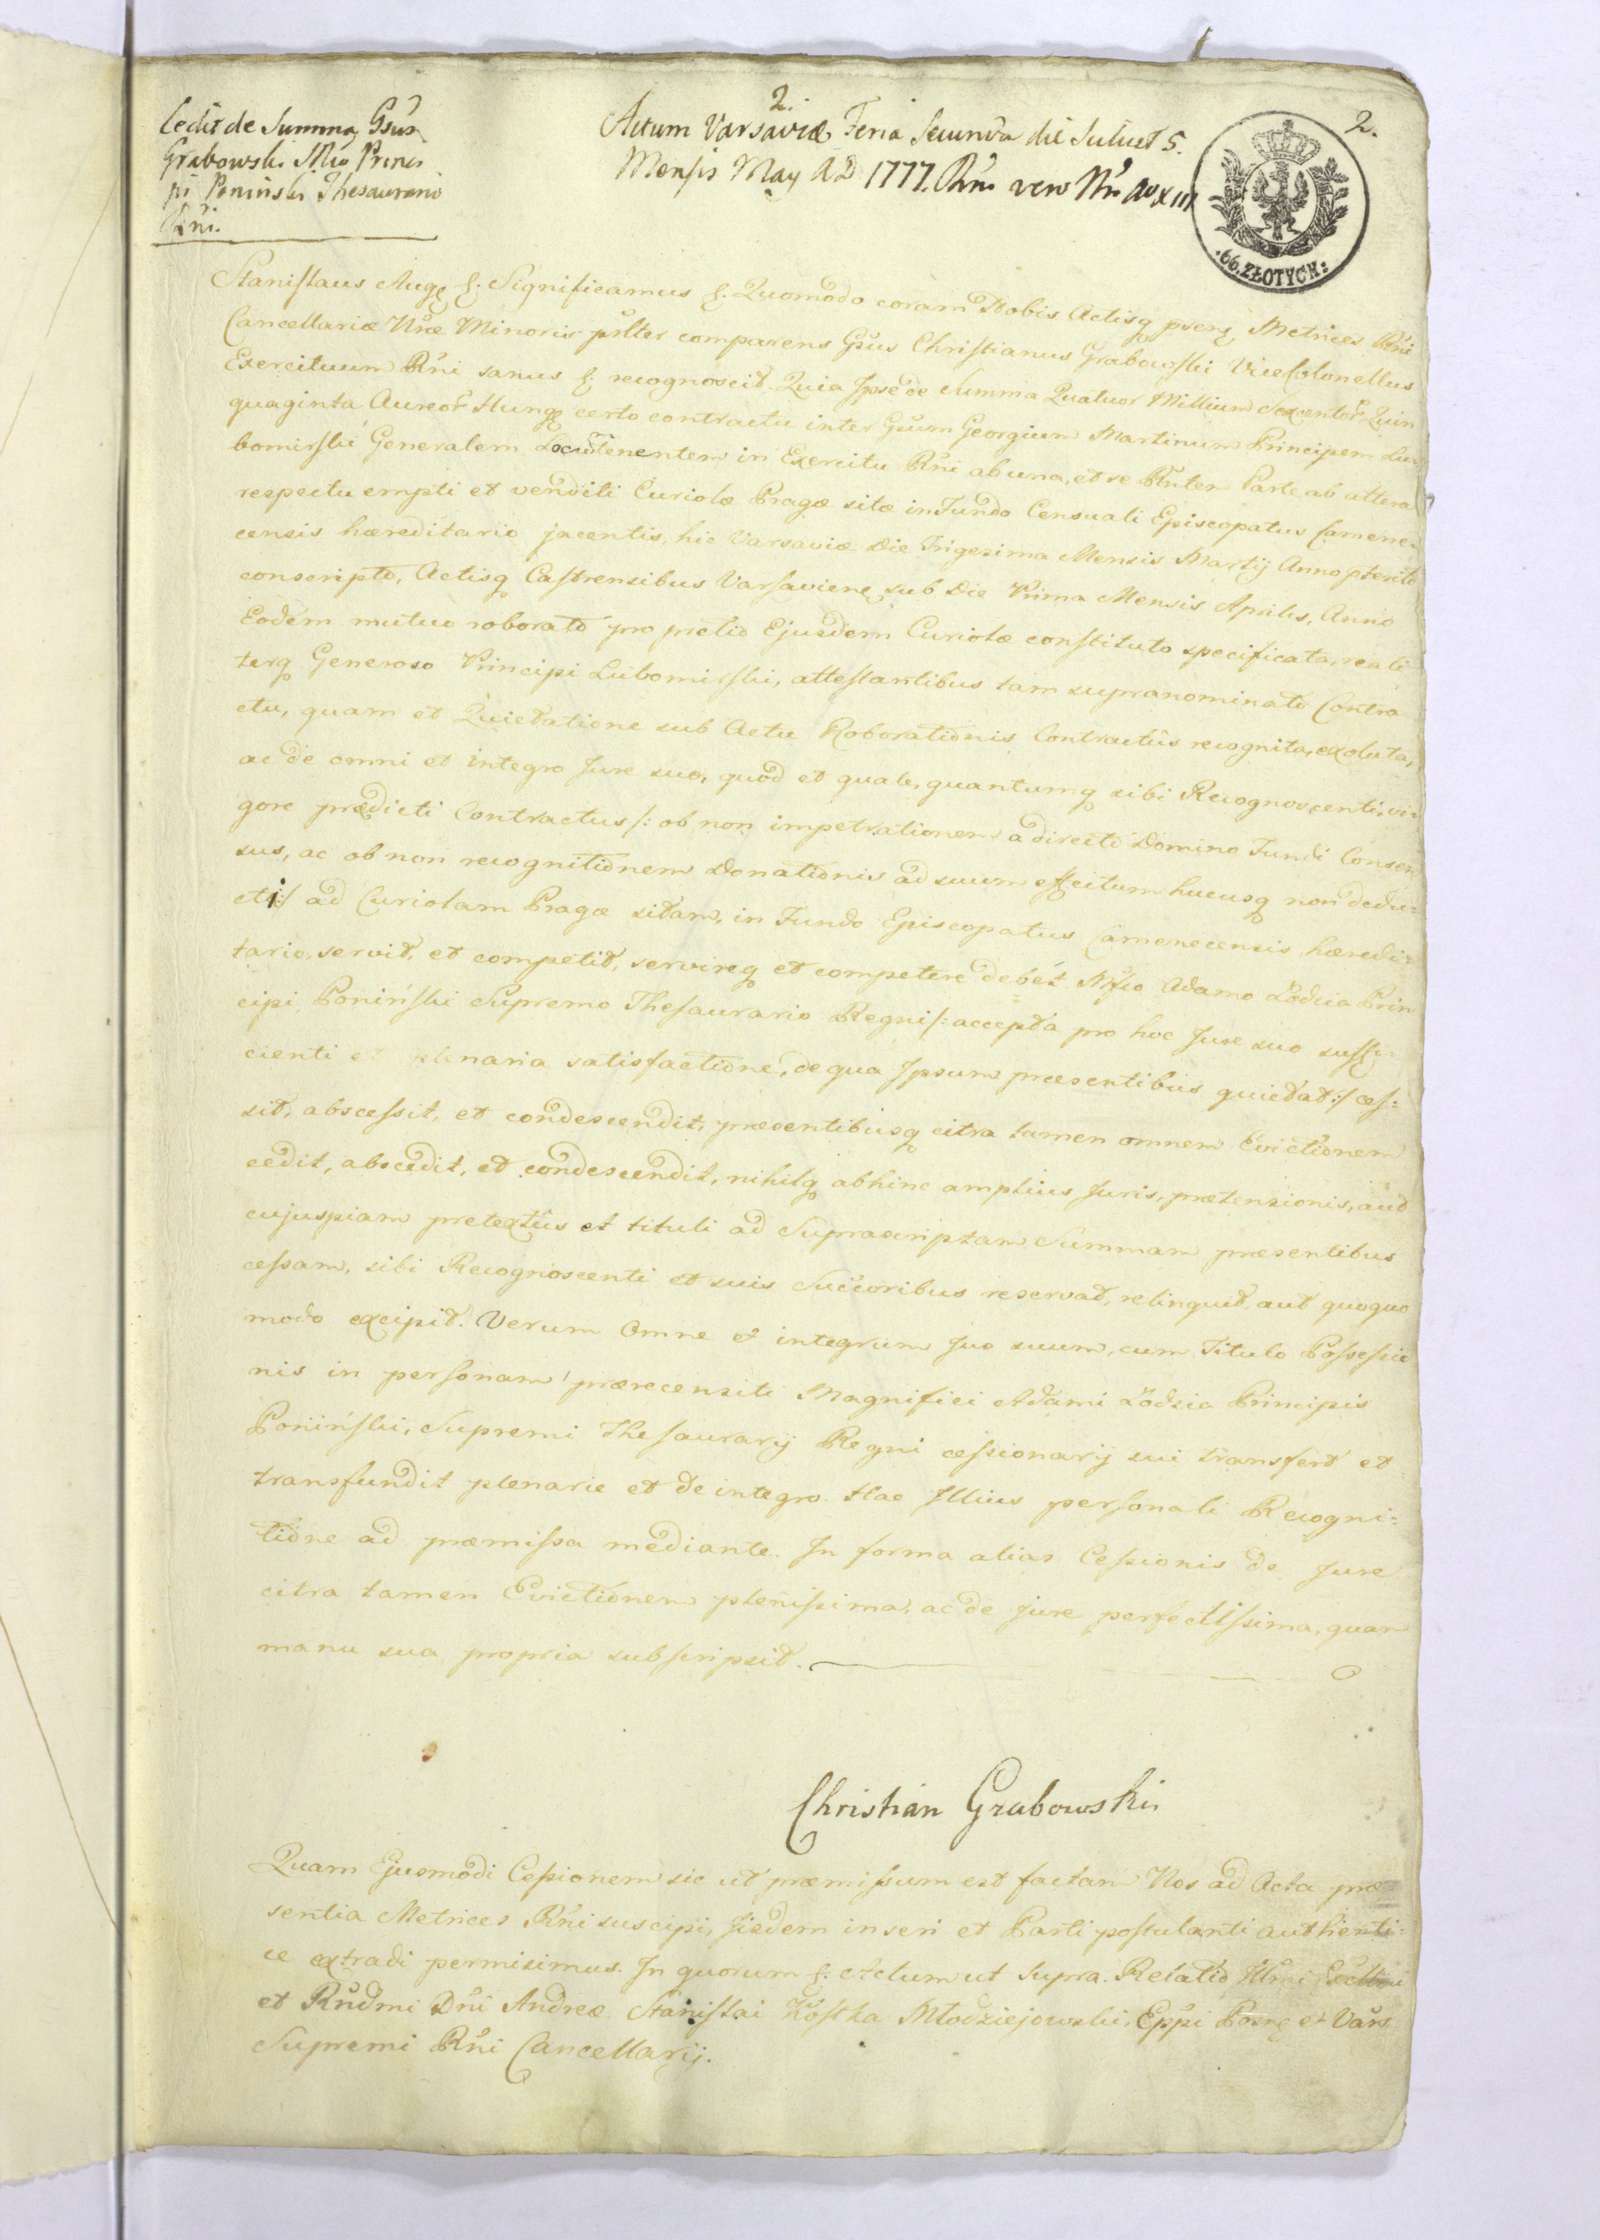 2.
2.
Cedit de Summa Gsus
Grabowski Mco Princi
pi Poninski Thesaurario
Rni.
Actum Varsaviæ Feria Secunda die scilicet 5.
Mensis May AD 1777. Rni vero Nri Ao XIII
.66. ZŁOTYCH:
Stanislaus Augq &. Significamus &. Quomodo coram Nobis Actisq psenq Metrices Rni
Cancellariæ Nræ Minoris pslter comparens Gsus Christianus Grabowski ViceColonellus
Exercituum Rni sanus &. recognoscit. Quia Ipse de Summa Quatuor Millium Sexentor Quin
quaginta Aureor Hungq certo contractu inter Gsum Georgium Martinum Principem Lu
bomirski Generalem Locumtenentem in Exercitu Rni ab una, et se Rntem Parte ab altera
respectu empti et venditi Curiolæ Pragæ sitæ in Fundo Censuali Episcopatus Camene=
censis hæreditario jacentis, hic Varsaviæ Die Trigesima Mensis Martij Anno pterito
conscripto, Actisq Castrensibus Varsavienq sub Die Prima Mensis Aprilis, Anno
Eodem mutuo roborato pro pretio Ejusdem Curiolæ constituto specificata, reali
terq Generoso Principi Lubomirski, attestantibus tam supranominato Contra
ctu, quam et Quietatione sub Actu Roborationis Contractûs recognita, exoluta,
ac de omni et integro Jure suo, quod et quale, quantumq sibi Recognoscenti, vi=
gore prædicti Contractus /: ob non impetrationem a directo Domino Fundi Consen
sus, ac ob non recognitionem Donationis ad suum effectum hucusq non dedu=
cti :/ ad Curiolam Pragæ sitam, in Fundo Episcopatus Camenecensis hæredi=
tario, servit, et competit, servireq et competere debet Mfco Adamo Łodzia Prin
cipi Poniński Supremo Thesaurario Regni /: accepta pro hoc Jure suo suffi=
cienti et plenaria satisfactione, de qua Ipsum præsentibus quietat :/ ces=
sit, abscessit, et condescendit, præsentibusq citra tamen omnem Evictionem
cedit, abscedit, et condescendit, nihilq abhinc amplius Juris, prætensionis, aut
cujuspiam pretextûs et tituli ad Suprascriptam Summam præsentibus
cessam, sibi Recognoscenti et suis Succoribus reservat, relinquet, aut quoquo
modo excipit. Verum Omne et integrum Jus suum, cum Titulo Possessio
nis in personam prærecensiti Magnifici Adami Łodzia Principis
Poniński, Supremi Thesaurarij Regni cessionarij sui transfert et
transfundit plenarie et de integro. Hac Illius personali Recogni=
tione ad præmissa mediante. In forma alias Cessionis de Jure
citra tamen Evictionem plenissima, ac de jure perfectissima, quam
manu sua propria subscripsit.
Christian Grabowski
Quam Ejusmodi Cessionem sic ut præmissum est factam Nos ad Acta præ=
sentia Metrices Rni suscipi, Iisdem inseri et Parti postulanti authenti=
ce extradi permisimus. In quorum &. Actum ut Supra. Relatio Illmi Excllmi
et Rndmi Dni Andreæ Stanislai Kostka Młodziejowski, Eppi Posnq et Vars
Supremi Rni Cancellarij.